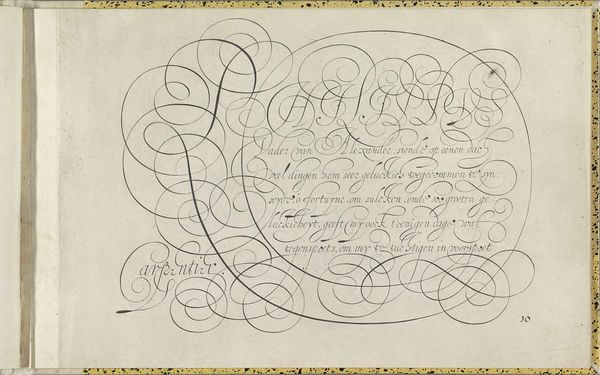 PHILIPPUS
Vader van Alexander, siende op eenen dach
veel dingen hem seer geluckich toegecommen te syn
seyde, o fortuyne om sulcken ende soo grooten ge-
luckicheyt, geeft my oock t'eenigen dage wat
tegenspoets, om my te tuchtigen in voorspoet.
Carpentier.
10